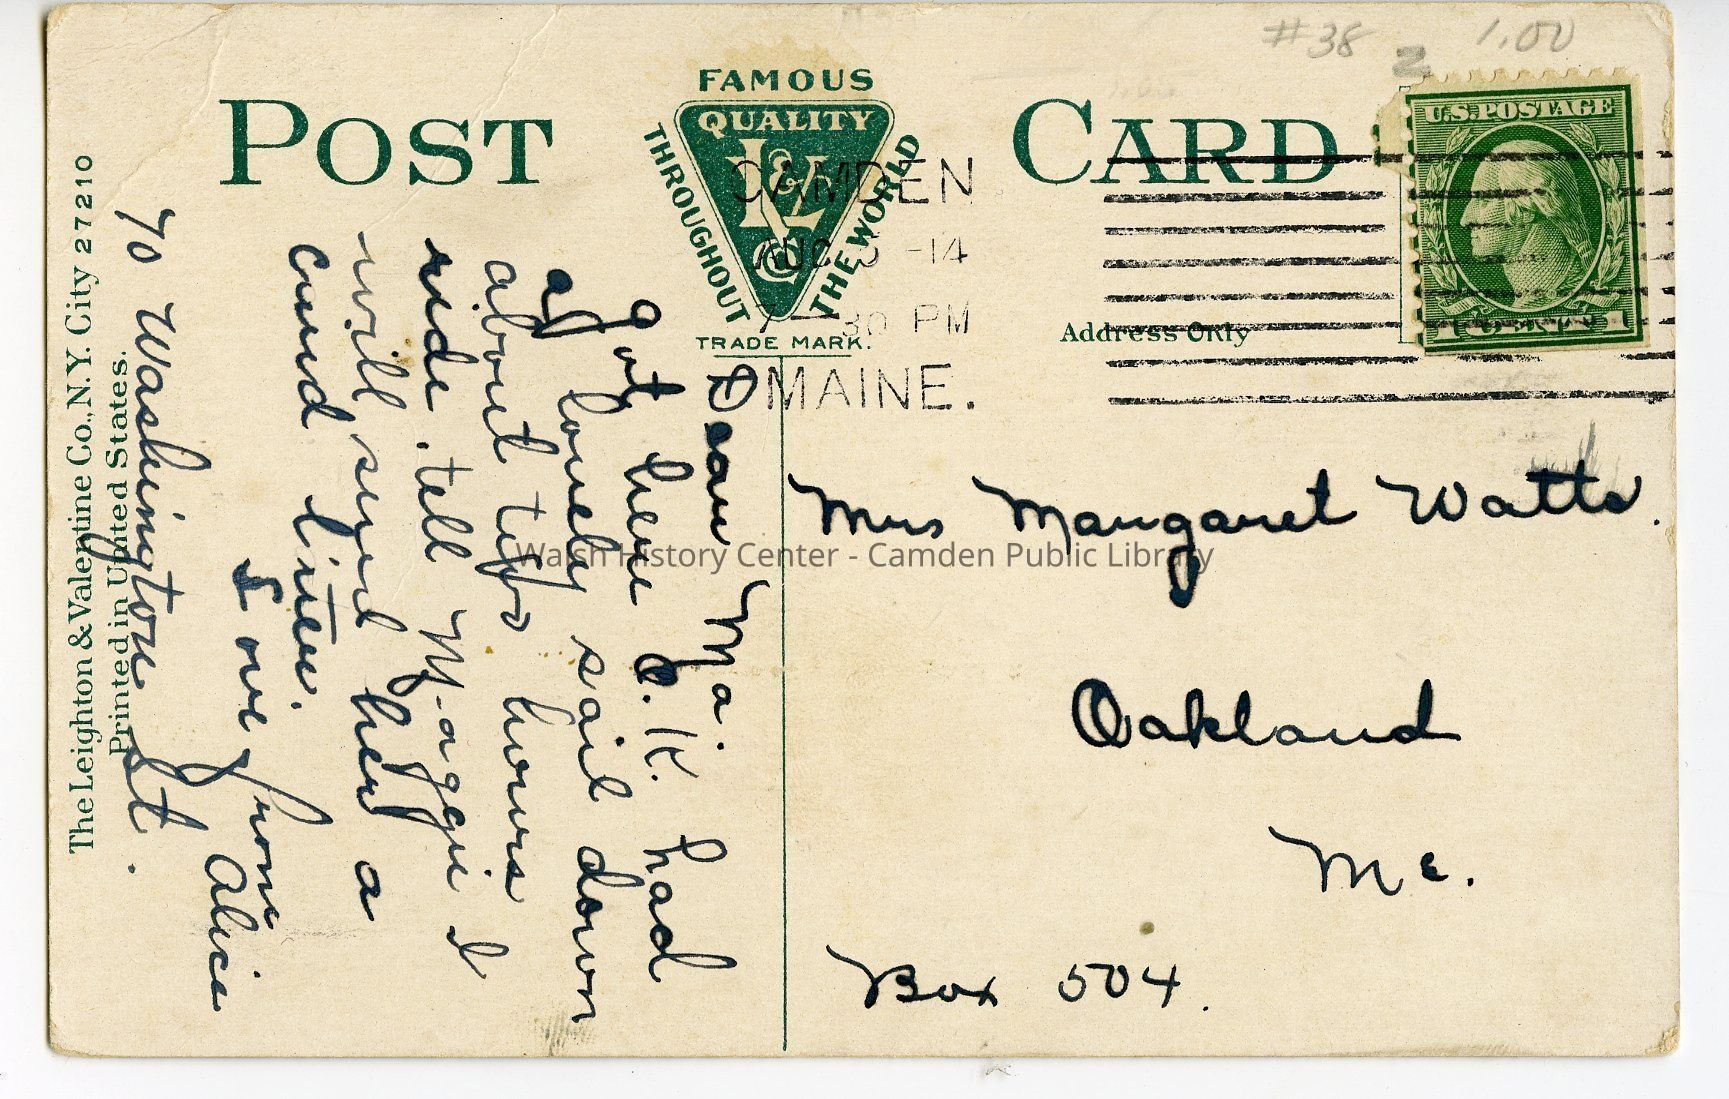 #38
1.00
2
POST CARD
FAMOUS
QUALITY
L&V
Co
THROUGHOUT
THE WORLD
TRADE MARK.
U.S. POSTAGE
CAMDEN
AUG 3 -14
7 - 30 PM
MAINE.
Address Only
The Leighton & Valentine Co., N.Y. City 27210
Printed in United States.
Dear Ma.
got here O.K. had
a lovely sail down
about two hours
ride. tell Maggie I
will send her a
card later.
Love from
Alice
70 Washington St.
Mrs Margaret Watts.
Oakland
Me.
Box 504.
Walsh History Center - Camden Public Library